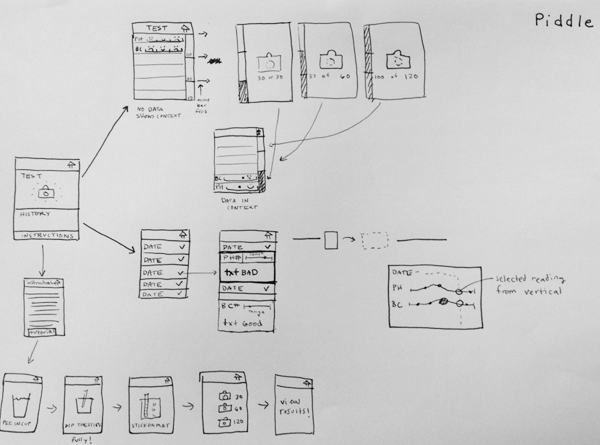 Piddle
TEST
PH
BC
NO DATA
SHOWS CONTEXT
30 of 30
37 of 60
100 of 120
BC
PH
DATA IN
CONTEXT
TEST
HISTORY
INSTRUCTIONS
DATE ✓
DATE ✓
DATE ✓
DATE ✓
DATE ✓
DATE ✓
PH#
txt BAD
DATE ✓
BC#
range
txt Good
DATE
PH
BC
selected reading
from vertical
tutorial
PEE IN CUP
DIP
fully!
30
60
120
VIEW
RESULTS!